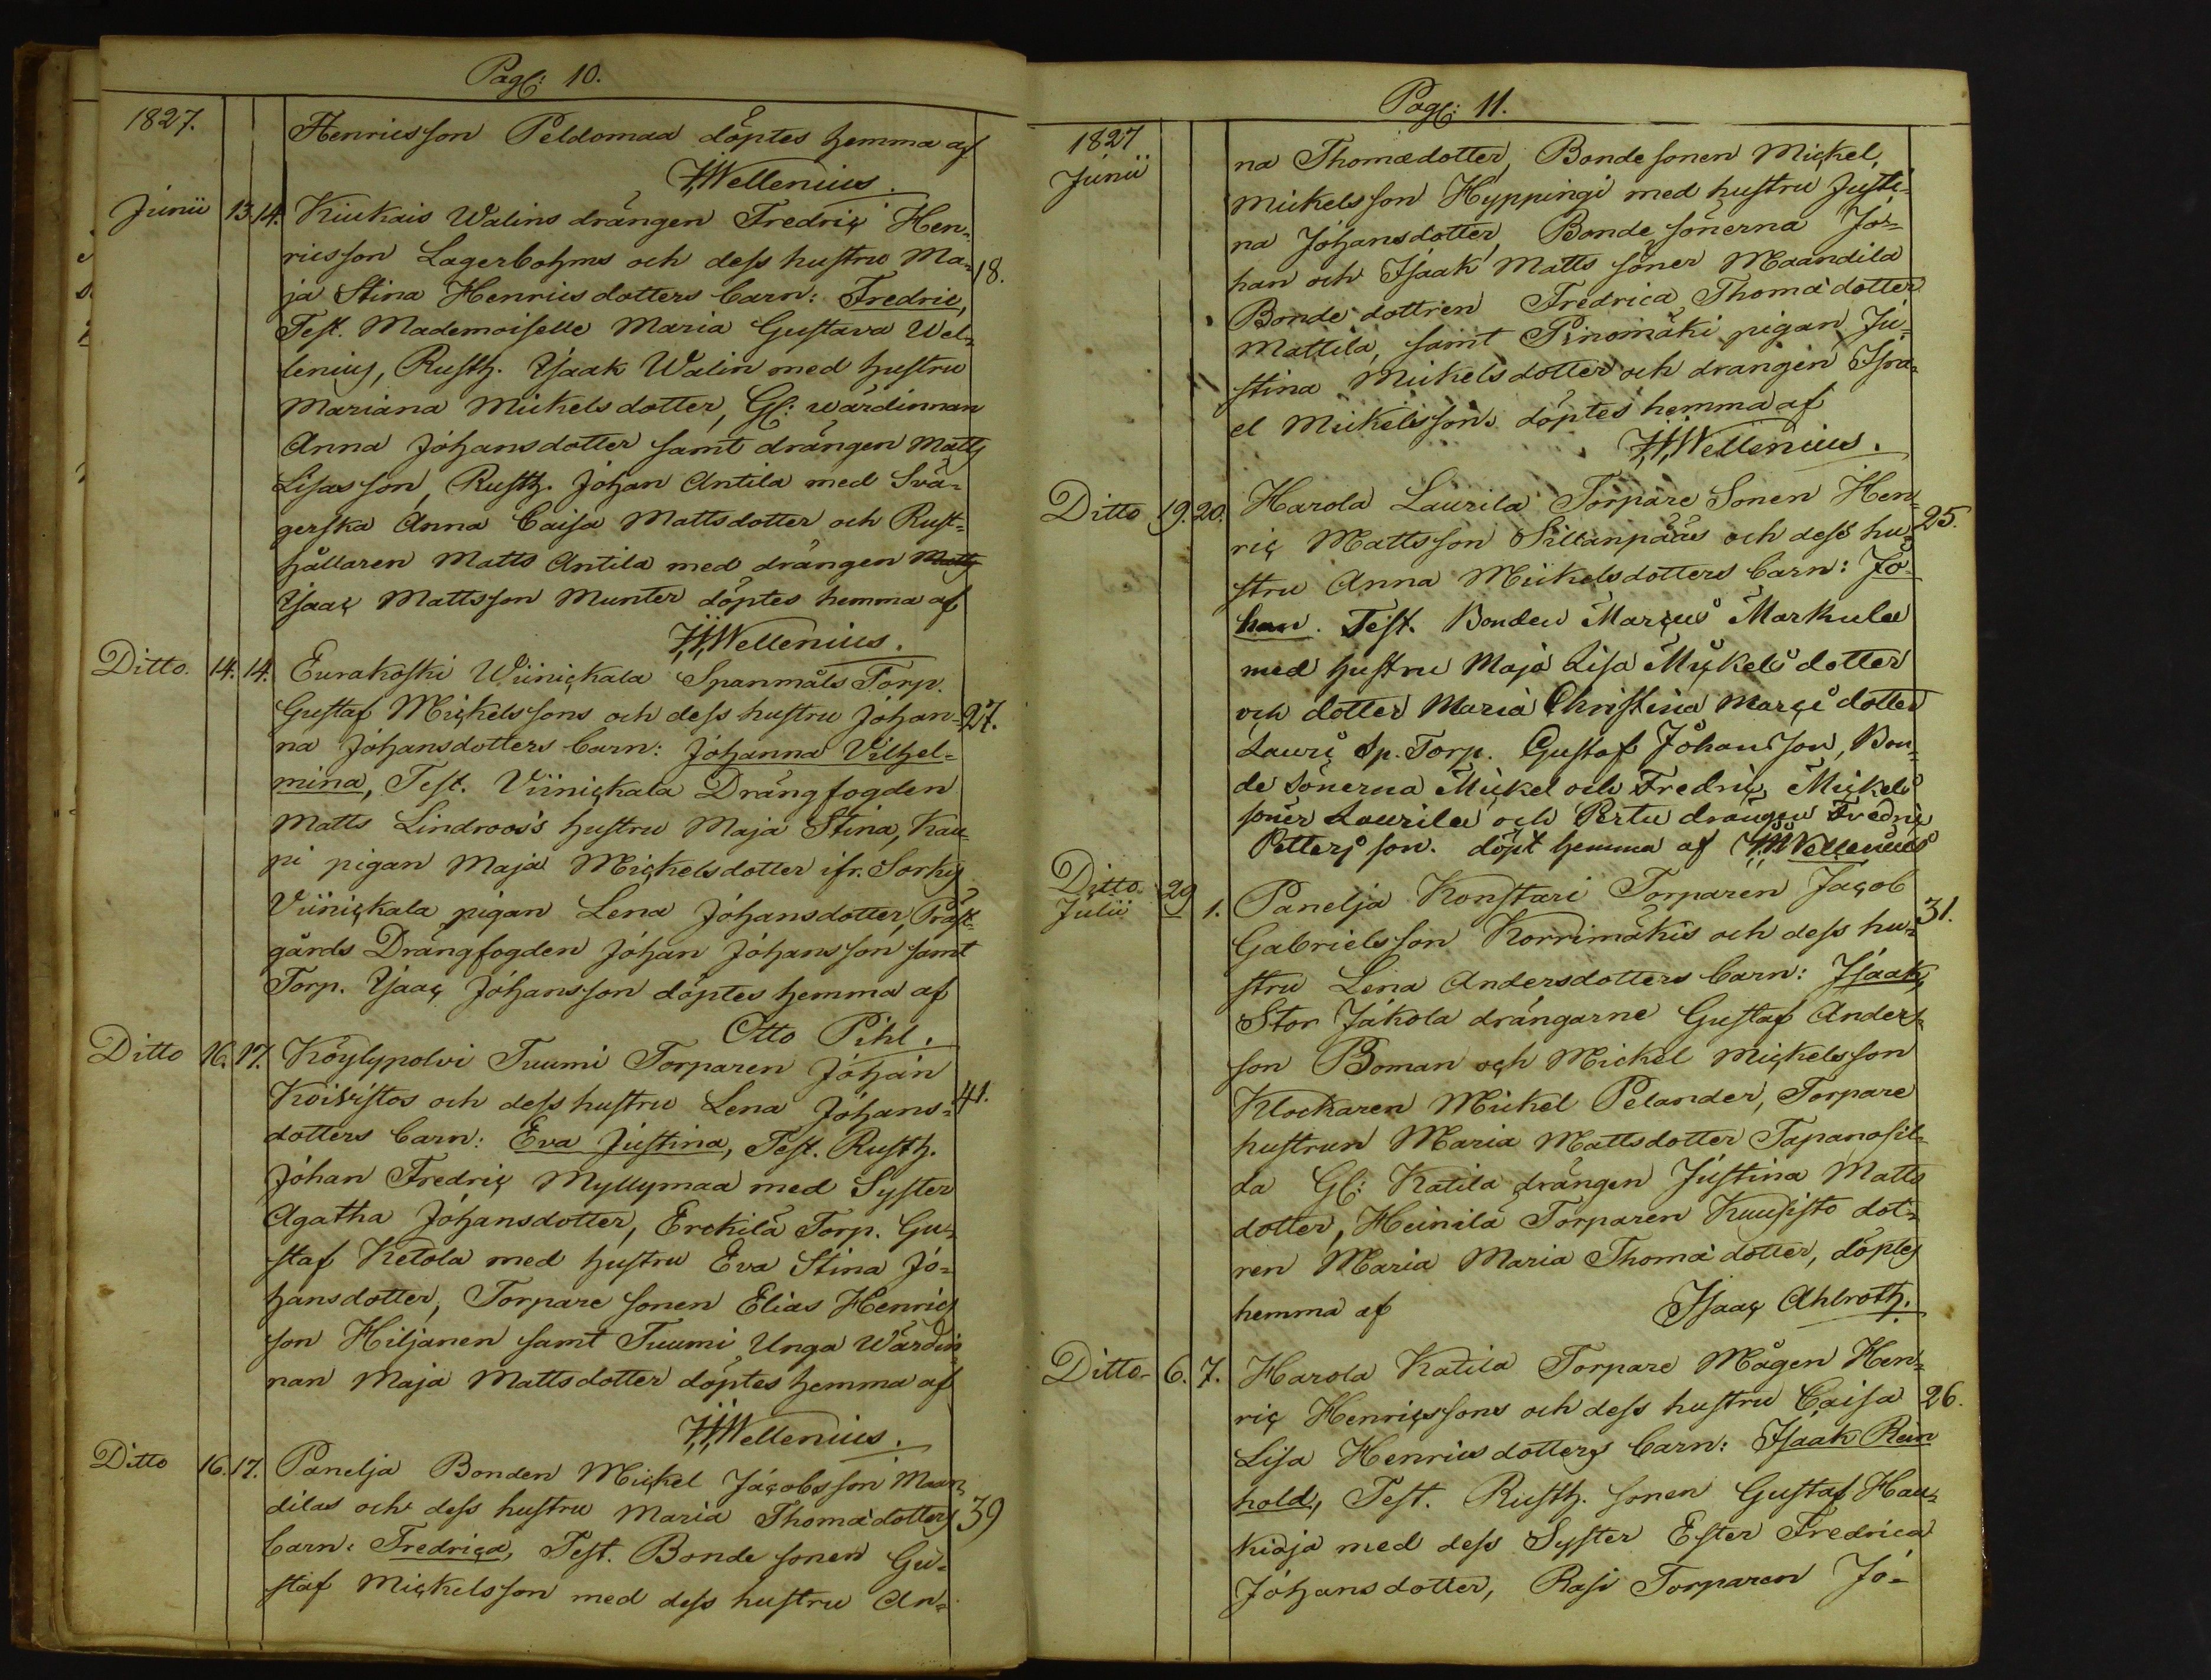 Pag: 10.
1827. Henricsson Peldomaa döptes hemma af
Wellenius.
Junii 13. 14. Kiukais Walins drängen Fredric Hen-
ricsson Lagerbohms och dess hustru Ma- 18.
ja Stina Henrics dotters barn: Fredric,
Test. Mademoiselle Maria Gustava Wel-
lenius, Rusth. Isaak Walin med hustru
Mariana Mickelsdotter, Gl: wärdinnan
Anna Johansdotter samt drängen Matts
Lisasson, Rusth. Johan Antila med Svä-
gerska Anna Caisa Mattsdotter och Rust-
hållaren Matts Antila med drängen Matts
Isaac Mattsson Munter döptes hemma af
Wellenius.
Ditto. 14. 14. Eurakoski Wiinickala Spanmåls Torp.
Gustaf Mickelssons och dess hustru Johan- 27.
na Johansdotters barn: Johanna Vilhel-
mina, Test. Viinickala Drängfogden
Matts Lindroos's hustru Maja Stina, Kau-
pi pigan Maja Mickelsdotter ifr. Sorky
Viinickala pigan Lena Johansdotter, Präst-
gårds Drängfogden Johan Johansson samt
Torp. Isaac Johansson döptes hemma af
Otto Pihl.
Ditto 16. 17. Köylypolvi Tuumi Torparen Johan
Koivistos och dess hustru Lena Johans- 41.
dotters barn: Eva Justina, Test. Rusth.
Johan Fredric Myllymaa med Syster
Agatha Johansdotter, Erckilä Torp. Gu-
staf Ketola med hustru Eva Stina Jo-
hansdotter, Torpare sonen Elias Henrics
son Hiljanen samt Tuumi Unga Wärdin-
nan Maja Mattsdotter döptes hemma af
Wellenius.
Ditto 16. 17. Panelja Bonden Mickel Jacobsson Maan-
dilas och dess hustru Maria Thomædotters 39
barn: Fredrica, Test. Bonde sonen Gu-
staf Mickelsson med dess hustru An-
Pag: 11.
1827 na Thomædotter, Bonde sonen Mickel,
Junii Mickelsson Hyppingi med hustru Justi-
na Johansdotter, Bonde sönerna Jo-
han och Isaak Matts söner Maandila
Bonde dottren Fredrica Thomædotter
Mattila, samt Pinomäki pigan Ju-
stina Mickelsdotter och drängen Isra-
el Mickelsson. döptes hemma af
Wellenius.
Ditto 19. 20. Harola Laurila Torpare Sonen Hen-
ric Mattsson Sillanpääs och dess hu- 25.
stru Anna Mickelsdotters barn: Jo-
han. Test. Bonden Marcus Markula
med hustru Maja Lisa Mickelsdotter
och dotter Maria Christina Marci dotter
Lauri Sp. Torp. Gustaf Johansson, Bon-
de sönerna Mickel och Fredric Mickels
söner Laurila och Pertu drängen Fredric
Petters son. döpt hemma af Wellenius
Ditto 29
Julii 1. Panelja Konstari Torparen Jacob
Gabrielsson Korrimäkis och dess hu- 31.
stru Lena Andersdotters barn: Isaak,
Stor Jákola drängarne Gustaf Anders-
son Boman och Mickel Mickelsson
Klockaren Mickel Pelander, Torpare
hustrun Maria Mattsdotter Tapanosil-
da Gl: Katila drängen Justina Matts
dotter, Heinilä Torparen Kuusisto dot-
ren Maria Maria Thomædotter, döptes
hemma af Isaac Ahlroth.
Ditto 6. 7. Harola Katila Torpare Mågen Hen-
ric Henricssons och dess hustru Caisa 26.
Lisa Henricsdotters barn: Isaak Rein
hold, Test. Rusth. sonen Gustaf Hau-
kioja med dess Syster Ester Fredrica
Johansdotter, Rasi Torparen Jo-